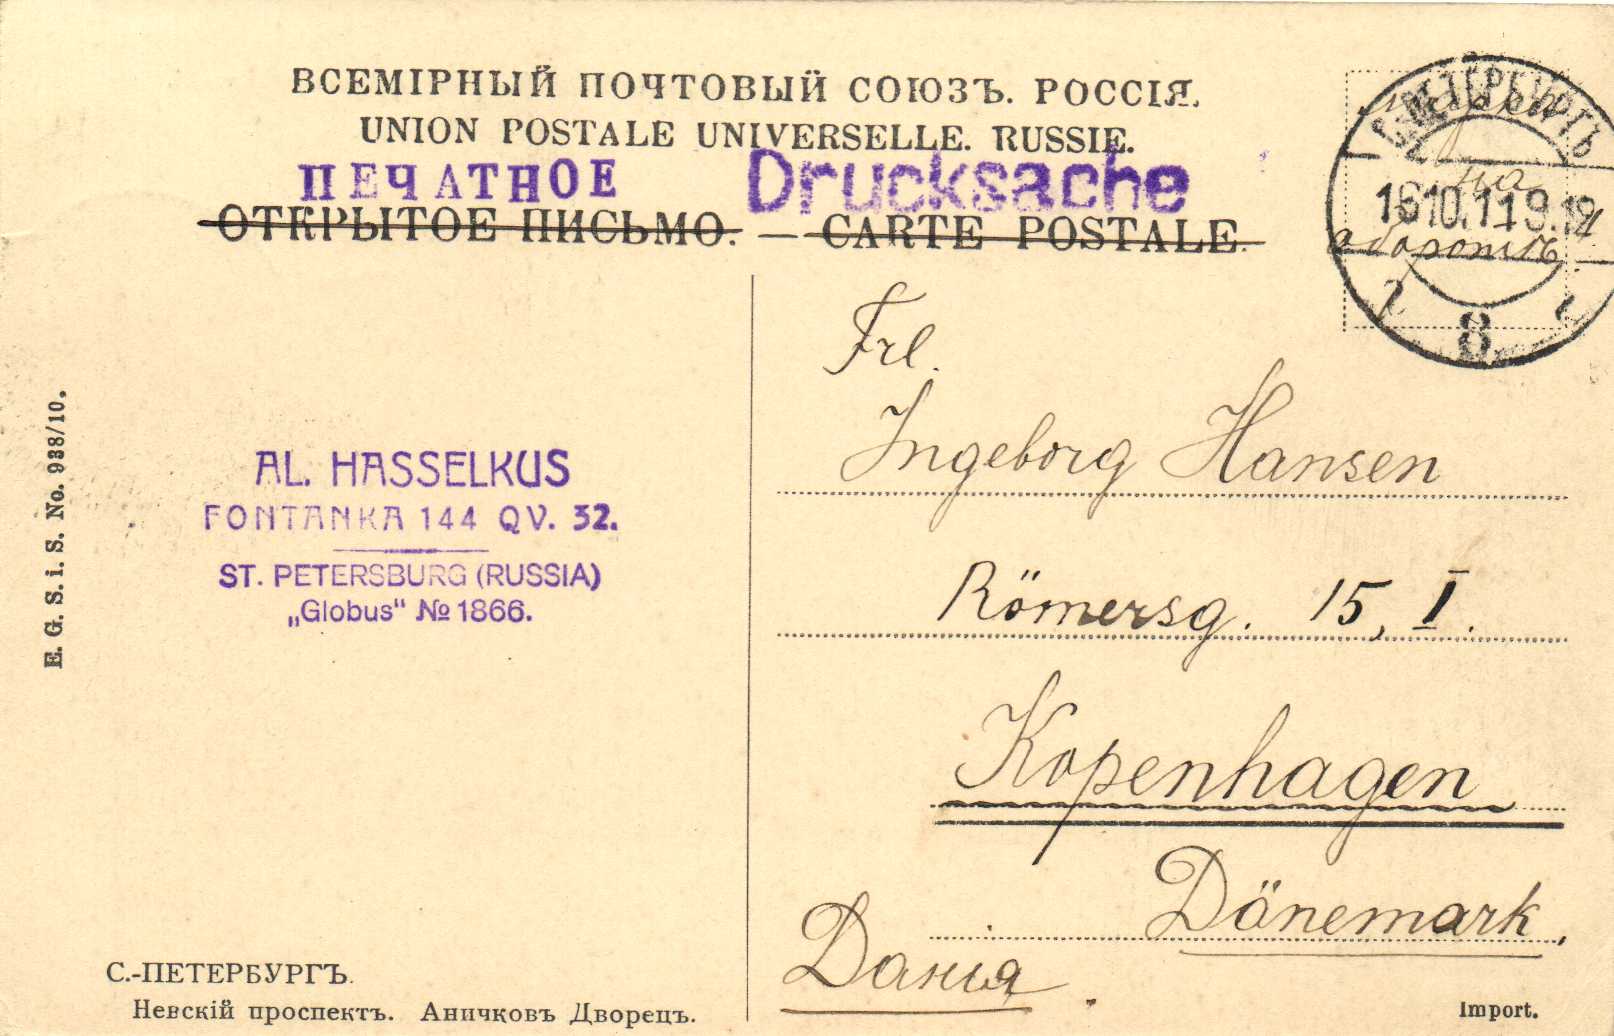 ВСЕМІРНЫЙ ПОЧТОВЫЙ СОЮЗЪ. РОССІЯ.
UNION POSTALE UNIVERSELLE. RUSSIE.
ПЕЧАТНОЕ Drucksache
ОТКРЫТОЕ ПИСЬМО. — CARTE POSTALE.
С.ПЕТЕРБУРГЪ
марки
на
оборотѣ
16.10.11
8
Frl.
Ingeborg Hansen
Römersg. 15, I.
Kopenhagen
Dänemark.
Данія.
AL. HASSELKUS
FONTANKA 144 QV. 32.
ST. PETERSBURG (RUSSIA)
„Globus“ № 1866.
E. G. S. i. S. No. 988/10.
С.-ПЕТЕРБУРГЪ.
Невскій проспектъ. Аничковъ Дворецъ.
Import.